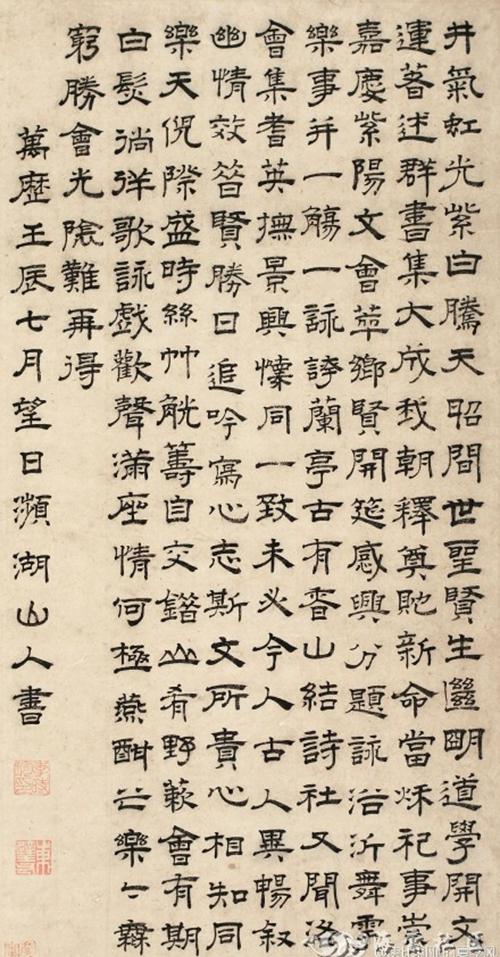 井氣虹光紫白騰天昭間世聖賢生繼明道學開文
運著述群書集大成我朝釋奠貤新命當秌祀事崇
嘉慶紫陽文會萃鄉賢開筵感興分題詠浴沂舞雩
樂事并一觴一詠誇蘭亭古有香山結詩社又聞洛
會集耆英撫景興懷同一致未必今人古人異暢叙
幽情效昔賢勝日追吟寫心志斯文所貴心相知同
樂天倪際盛時絲竹觥籌自交錯山肴野蔌會有期
白髮徜徉歌詠戲歡聲滿座情何極燕酣之樂々無
窮勝會光陰難再得
萬歷壬辰七月望日瀕湖山人書